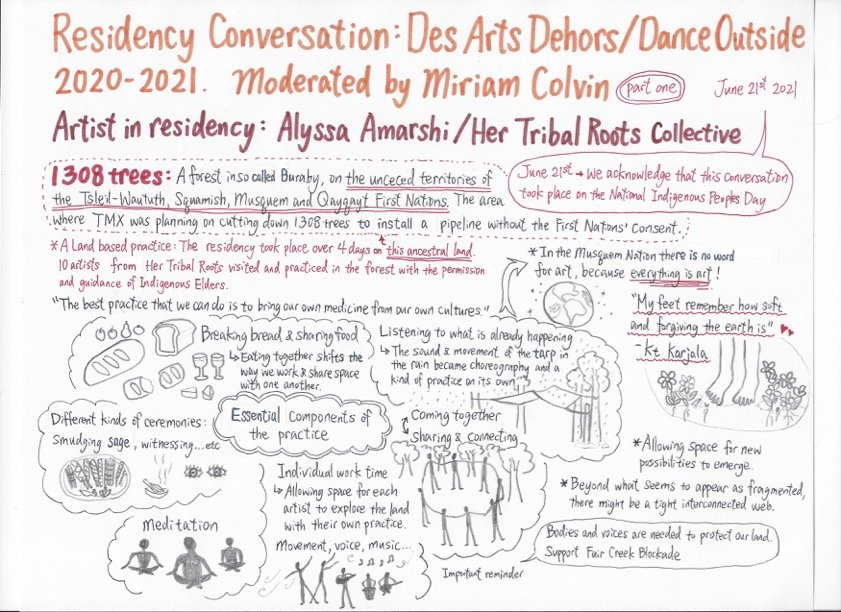 Residency Conversation: Des Arts Dehors/Dance Outside
2020-2021. Moderated by Miriam Colvin (part one) June 21st 2021
Artist in residency: Alyssa Amarshi/Her Tribal Roots Collective
1308 trees: A forest in so called Buraby, on the unceced territories of
the Tsleil-Waututh, Squamish, Musquem and Qayqayt First Nations. The area
where TMX was planning on cutting down 1308 trees to install a pipeline without the First Nations' Consent.
June 21st → we acknowledge that this conversation
took place on the National Indigenous Peoples Day
* A Land based practice: The residency took place over 4 days on this ancestral land.
10 artists from Her Tribal Roots visited and practiced in the forest with the permission
and guidance of Indigenous Elders.
* In the Musquem Nation there is no word
for art, because everything is art!
"The best practice that we can do is to bring our own medicine from our own cultures."
"My feet remember how soft
and forgiving the earth is"
- Kt Karjala
Breaking bread & sharing food
↳ Eating together shifts the
way we work & share space
with one another.
Listening to what is already happening
↳ The sound & movement of the tarp in
the rain became choreography and a
kind of practice on its own
Essential Components of
the practice
Different kinds of ceremonies:
smudging sage, witnessing...etc
Coming together
Sharing & connecting
Individual work time
↳ Allowing space for each
artist to explore the land
with their own practice.
Movement, voice, music...
Meditation
* Allowing space for new
possibilities to emerge.
* Beyond what seems to appear as fragmented,
there might be a tight interconnected web.
Bodies and voices are needed to protect our land.
Support Fair Creek Blockade
Important reminder